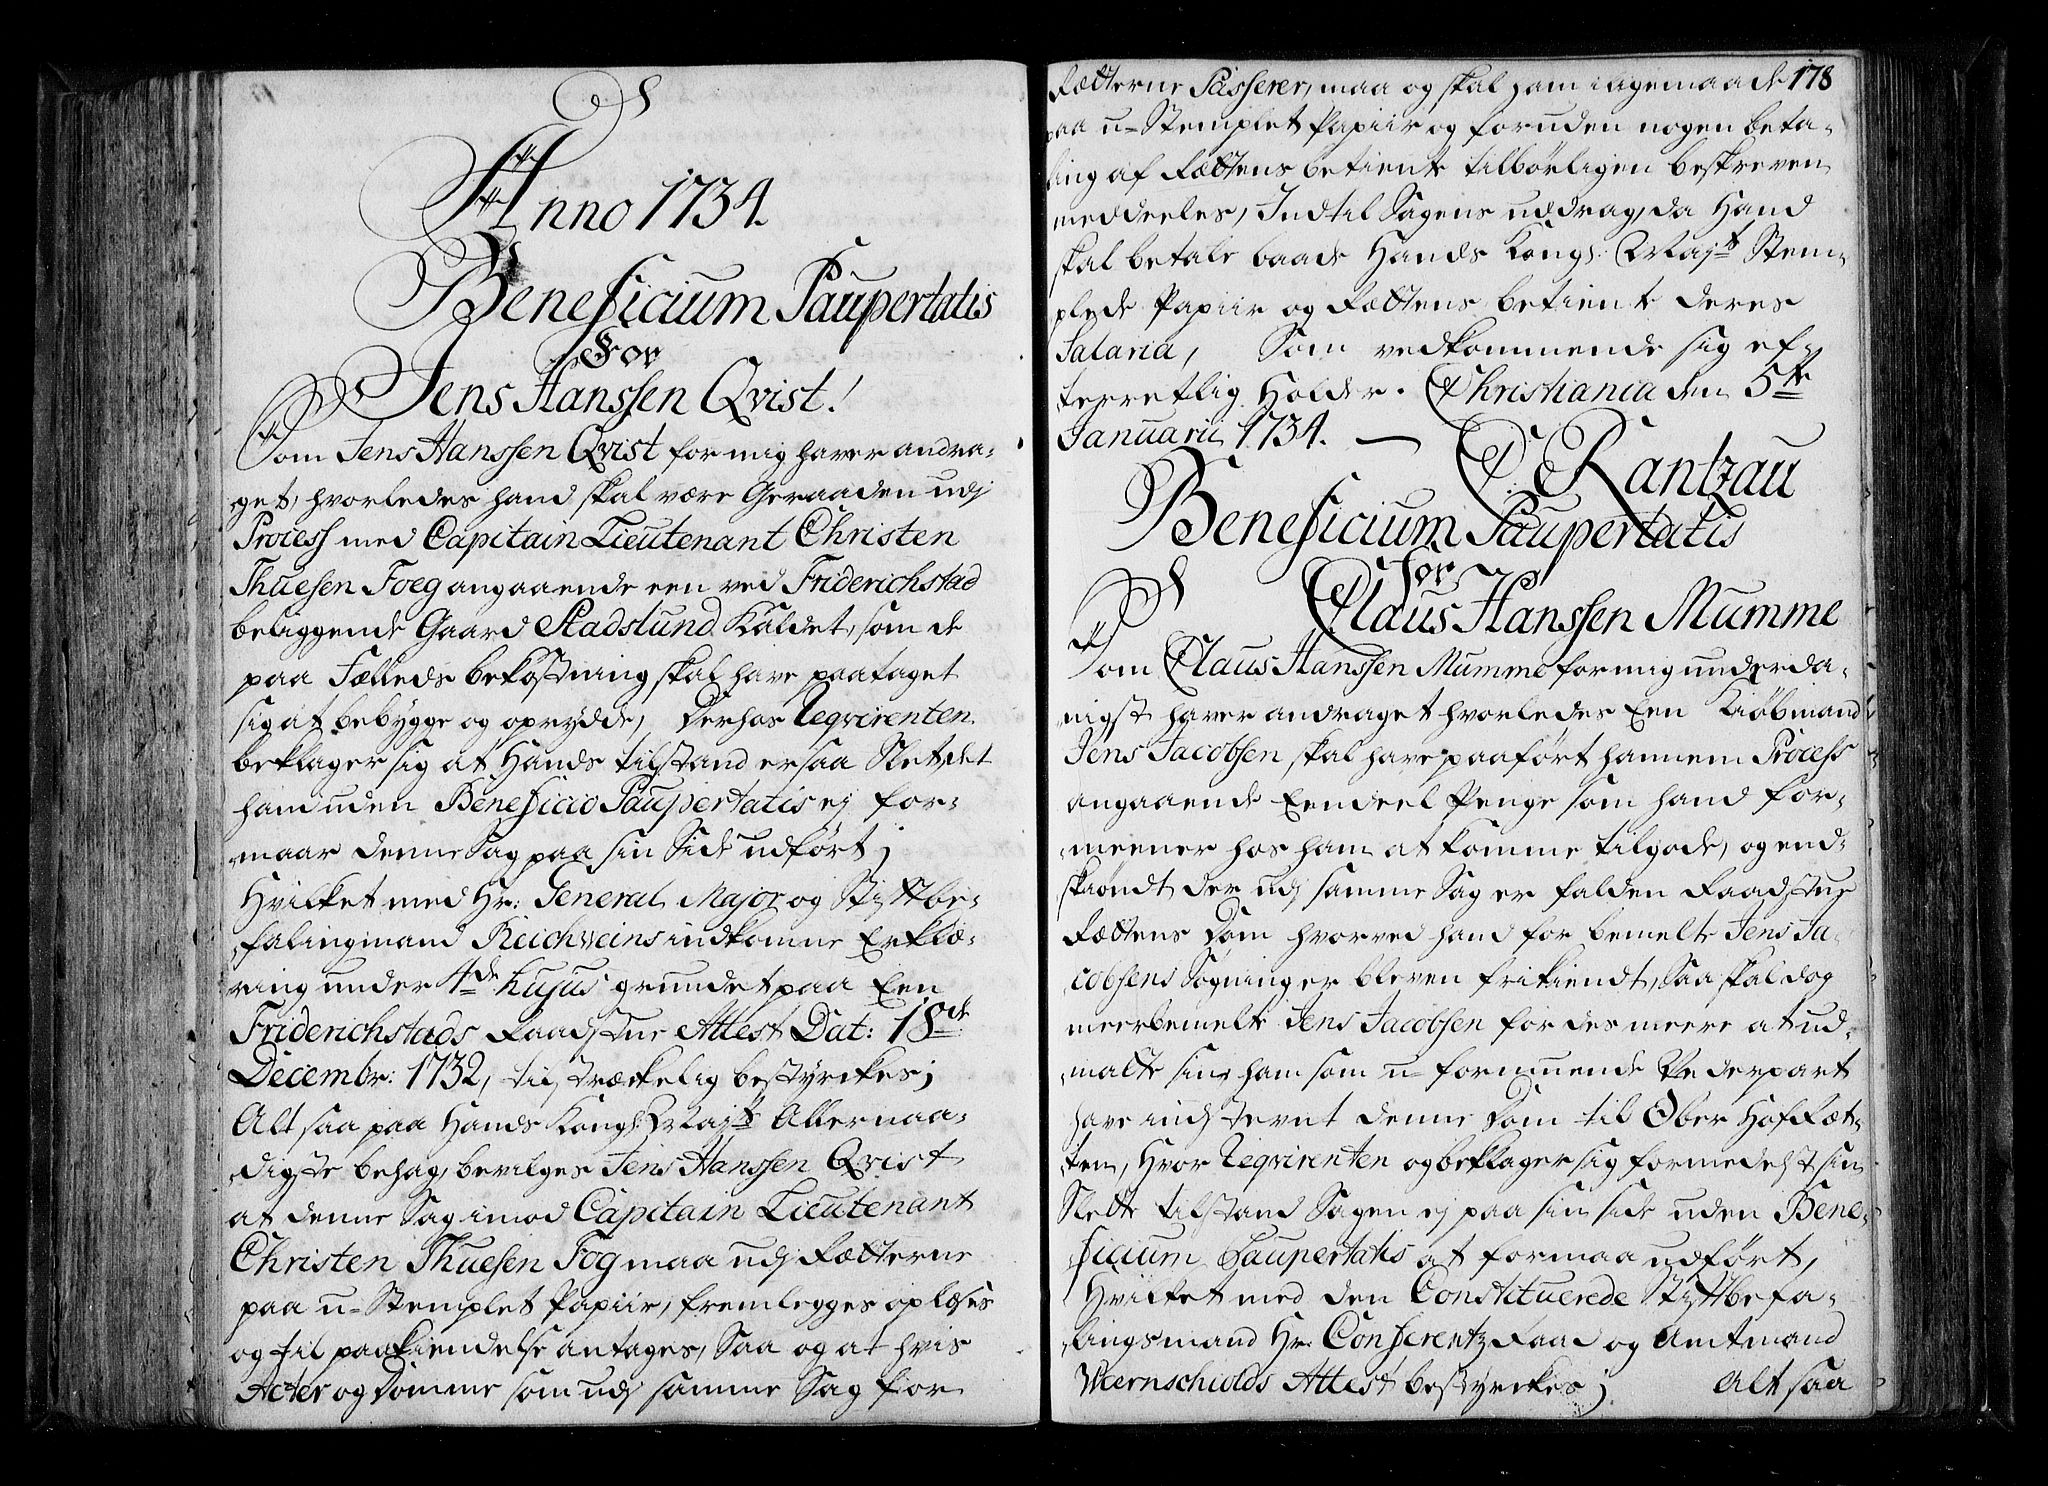 Anno 1734.
Beneficium Paupertatis
For
Jens Hanssen Qvist!
Som Jens Hanssen Qvist for mig haver andra-
get, hvorledes hand skal være Geraaden udj
Process med Capitain Lieutenant Christen
Thuesen Foeg angaaende een ved Friderichstad
beliggende Gaard Stadslund Kaldet, som de
paa Fælleds bekostning skal have paataget
sig at bebygge og oprydde, Derhos Reqvirenten
beklager sig at Hands tilstand er saa Slet, det
hand uden Beneficio Paupertatis ej for-
maar denne Sag paa sin Side udført;
Hvilket med Hr: General Major og Stiftbe-
falingmand Reichweins indkomne Erklæ-
ring under 4de hujus grundet paa Een
Friderichstads Raadstue Attest Dat: 18de
Decembr: 1732, tilstrækkelig bestyrckes;
Alt saa paa Hands Kongl: Majts Allernaa-
digste behag, bevilges Jens Hanssen Qvist
at denne Sag imod Capitain Lieutenant
Christen Thuesen Fog maa udj Rætterne
paa u-Stemplet Papiir, fremlegges oplæses
og til paakiendelse antages, Saa og at hvis
Acter og Domme som udj samme Sag for
Rætterne Passerer, maa og skal ham i ligemaade 178
paa u-Stemplet Papiir og foruden nogen beta-
ling af Rættens betiente tilbørligen beskreven
meddeeles, Indtil Sagens uddrag, da Hand
skal betale baade Hands Kongl: Majts Stem-
plede Papiir og Rættens betiente deres
Salaria, Som vedkommende sig ef-
terretlig Holder. Christiania den 5te
Januarii 1734.
C: Rantzau
Beneficium Paupertatis
for
Claus Hanssen Mumme
Som Claus Hanssen Mumme for mig underda-
nigst haver andraget hvorledes Een Kiøbmand
Jens Jacobsen, skal have paaført hannem Process
angaaende Eendeel Penge som hand for-
meener hos ham at komme tilgode, og end-
skiøndt der udj samme Sag er falden Raadstue
Rættens Dom hvorved hand for bemelte Jens Ja-
cobsens Søgninger bleven frikiendt, Saa skal dog
meerbemelte Jens Jacobsen for des meere at ud-
matte sin ham som u-formuende Vederpart
have indstevnt denne Dom til Ober Hof Ræt-
ten, Hvor Reqvirenten og beklager sig formedelst sin
Slette tilstand Sagen ej paa sin side uden Bene-
ficium Paupertatis at formaa udført,
Hvilket med den Constituerede Stiftbefa-
lingsmand Hr: Conferentz Raad og Amtmand
Weernschiolds Attest bestyrckes; Alt saa